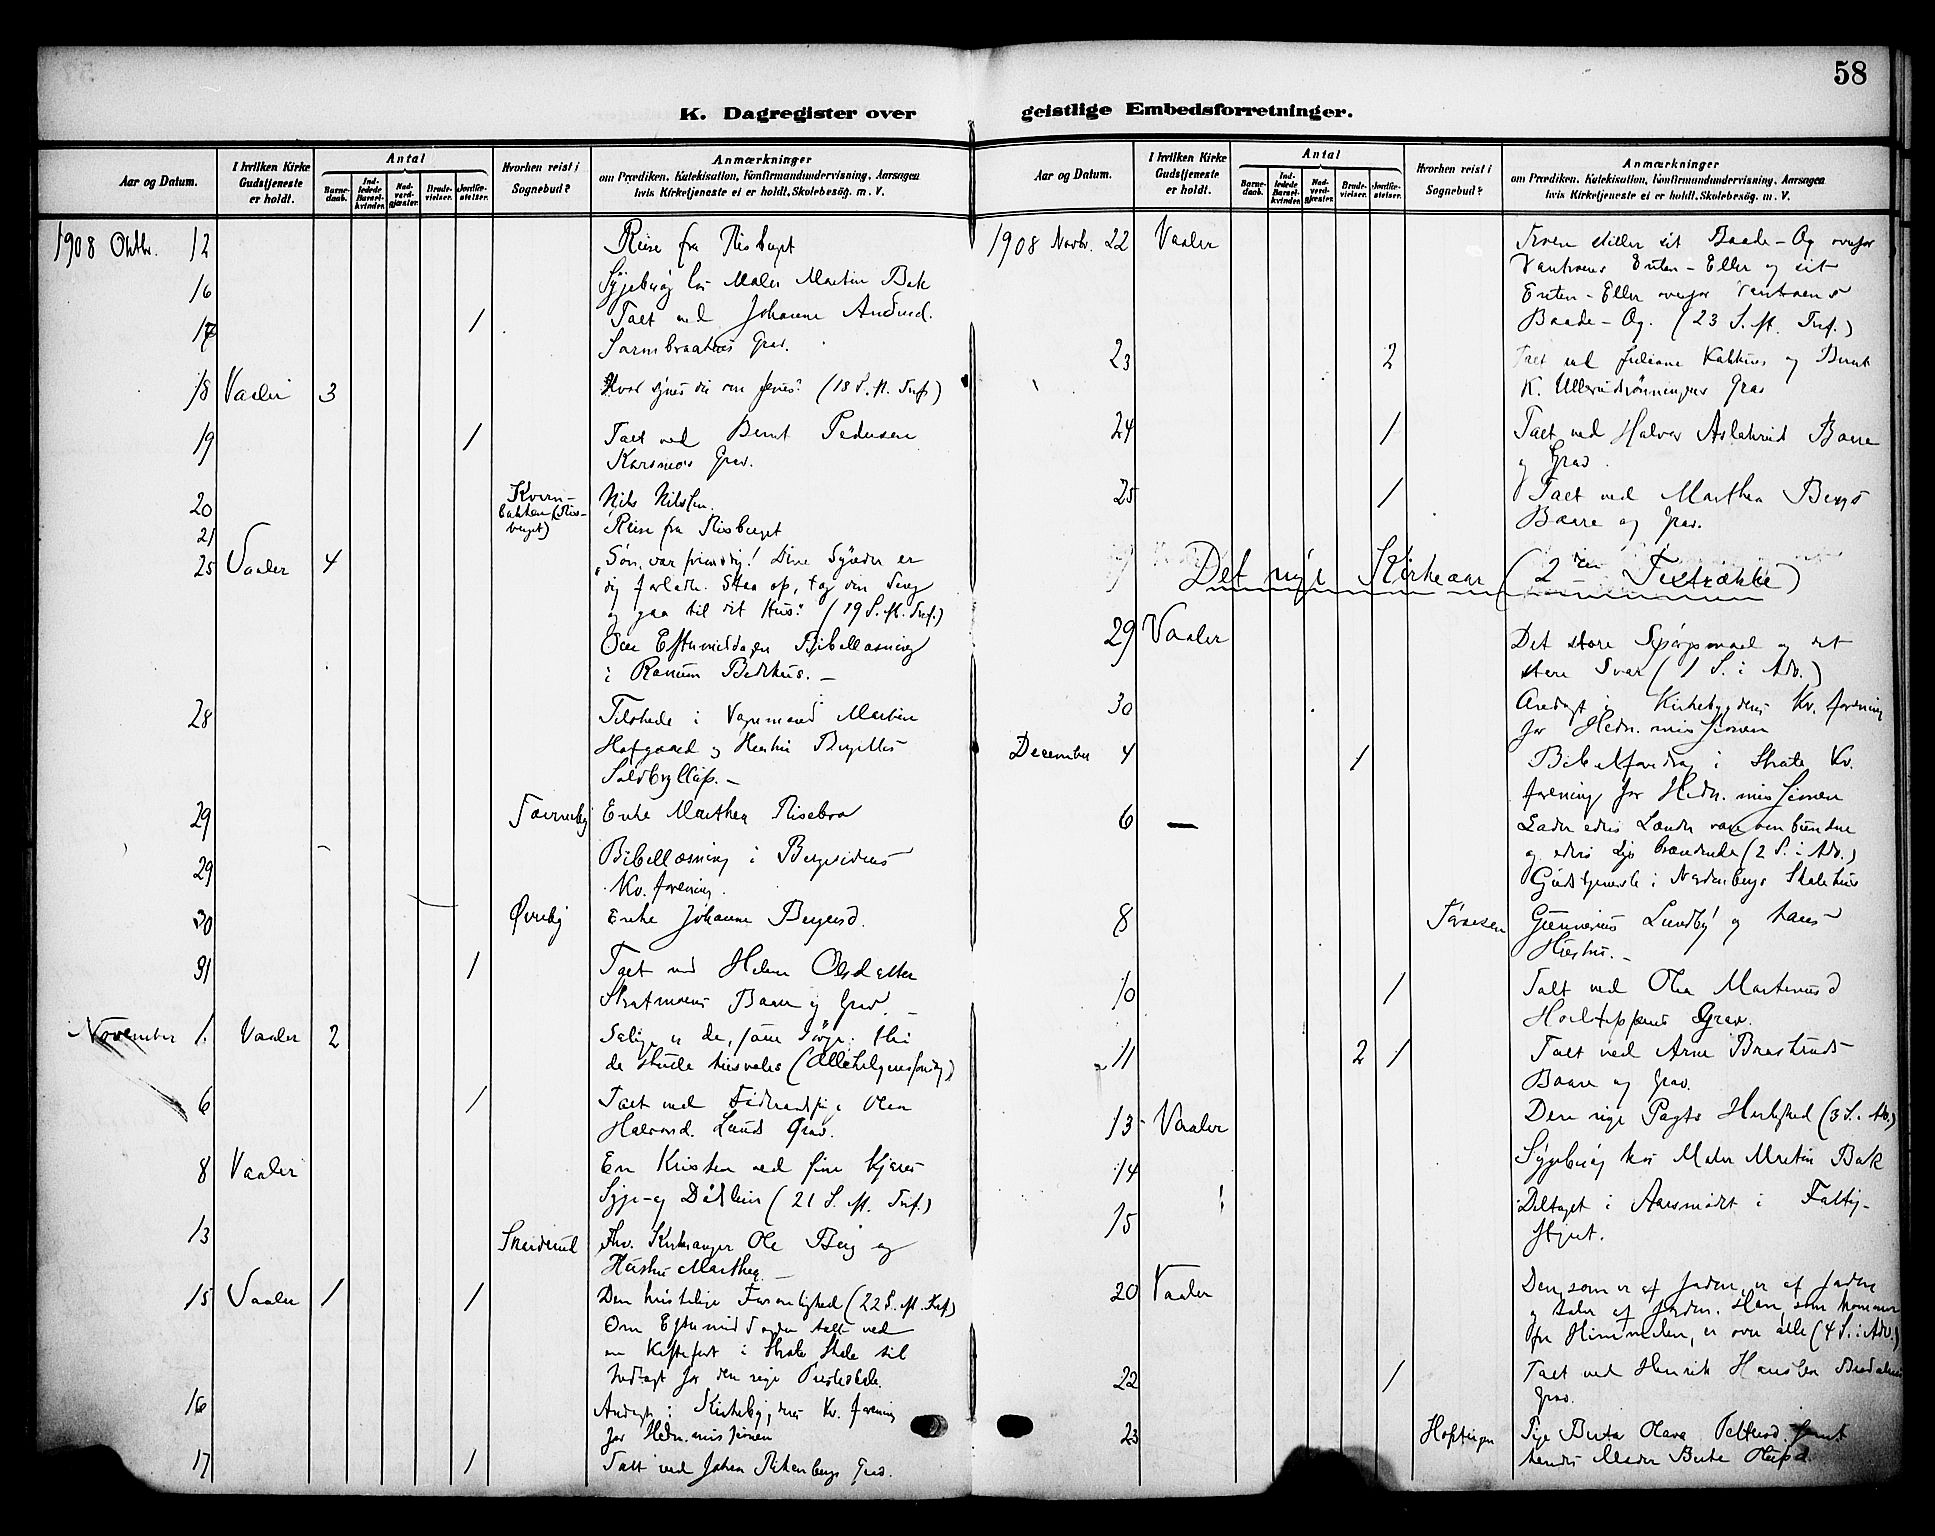 58
K. Dagregister over geistlige Embedsforretninger.
Aar og Datum.
I hvilken Kirke Gudstjeneste er holdt.
Antal
Barnedaab.
Indledede Barselkvinder.
Nadverdgjæster.
Brudevielser.
Jordfæstelser.
Hvorhen reist i Sognebud?
Anmærkninger
om Prædiken, Katekisation, Konfirmandundervisning, Aarsagen
hvis Kirketjeneste ei er holdt, Skolebesøg. m. V.
1908 Oktbr. 12 Reise fra Risberget
16 Sygebesøg hos Maler Martin Bak
17 1 Talt ved Johanne
Grav.
18 Vaaler 3 Hvad synes du om Jesus? (18 S. e. Tref.)
19 1 Talt ved Bernt Pedersen
Karsmoes Grav.
20 Kvernbakken (Risberget) Nils Nilsen.
21 Reise fra Risberget
25 Vaaler 4 Søn, vær frimodig! Dine Synder er
dig forladte. Staa op, tag din Seng
og gaa til dit Hus. (19 S. e. Tref.)
Om Eftermiddagen Bibellæsning
i Ranum Bedehus. —
28 Tilstede i Martin
Hofgaard og Hustru
Sølvbryllup. —
29 Enke Marthea
29 Bibellæsning i
Kv. forening.
30 Øvreby Enke Johanne
31 1 Talt ved Helene Olsdatter
Baare og Grav. —
November 1. Vaaler 2 Salige er de, som sørge; thi
de skulde husvales (Allehelgensøndag)
6 1 Talt ved Olea
Halvorsd. Lunds Grav.
8 Vaaler En Kristen ved sine Kjæres
Syge- og Dødsleie (21 S. e. Tref.)
13 Skeiderud Fhv. Kirkesanger Ole Berg og
Hustru Marthea —
15 Vaaler 1 1 Den kristelige (22 S. e. Tref)
Om Eftermiddagen talt ved
en i Skole til
Indtægt for den nye
16 Andagt i Kirkebygdens Kv. forening
for Hedn. missionen
17 1 Talt ved Johan Grav.
Aar og Datum.
I hvilken Kirke Gudstjeneste er holdt.
Antal
Barnedaab.
Indledede Barselkvinder.
Nadverdgjæster.
Brudevielser.
Jordfæstelser.
Hvorhen reist i Sognebud?
Anmærkninger
om Prædiken, Katekisation, Konfirmandundervisning, Aarsagen
hvis Kirketjeneste ei er holdt, Skolebesøg. m. V.
1908 Novbr. 22 Vaaler Troen stiller sit Baade-Og ovenfor
Vantroens Enten-Eller og sit
Enten-Eller ovenfor Vantroens
Baade-Og. (23 S. e. Tref.)
23 2 Talt ved Juliane og Bernt
K. Grav
24 1 Talt ved Halvor Baare
og Grav.
25 1 Talt ved Marthea Bergs
Baare og Grav.
Det nye Kirkeaar (2den Textrække)
29 Vaaler Det store Spørgsmaal og det
store Svar (1 S. i Adv.)
30 Andagt i Kirkebygdens Kv. forening
for Hedn. missionen
December 4 1 Bibelforedrag i Kv.
forening for Hedn. missionen
6 — Lader eders Lænder være ombundne
og eders Lys brændende (2 S. i Adv.)
Gudstjeneste i Skolehus
8 Gunnerius Lundby og hans
Hustru. —
10 1 Talt ved Olea
Grav.
11 2 1 Talt ved Arne
Baare og Grav.
13 Vaaler Den nye Pagts Herlighed (3 S. i Adv.)
14 Sygebesøg hos Maler Martin Bak
15 Deltaget i Aarsmødet i Fattigstyret.
20 Vaaler Den, som er af Jorden, er af Jorden
og taler af Jorden. Han, som kommer
fra Himmelen, er over alle (4 S. i Adv.)
22 1 Talt ved Henrik Hansen
Grav.
23 Pige Berta Olava samt
hendes Moder Berte